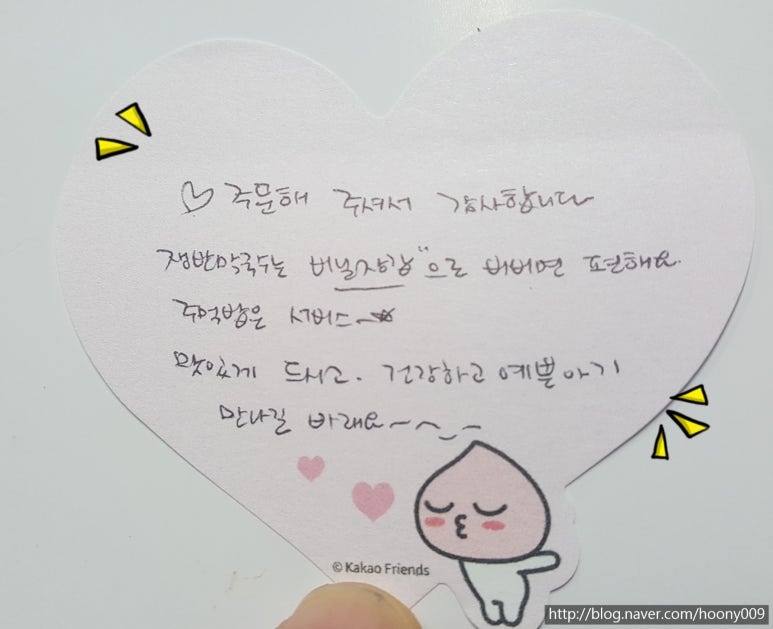 ♡ 주문해 주셔서 감사합니다
쟁반막국수는 비닐장갑"으로 비비면 편해요.
주먹밥은 서비스~★
맛있게 드시고. 건강하고 예쁜아기
만나길 바래요~^_~
© Kakao Friends
http://blog.naver.com/hoony009